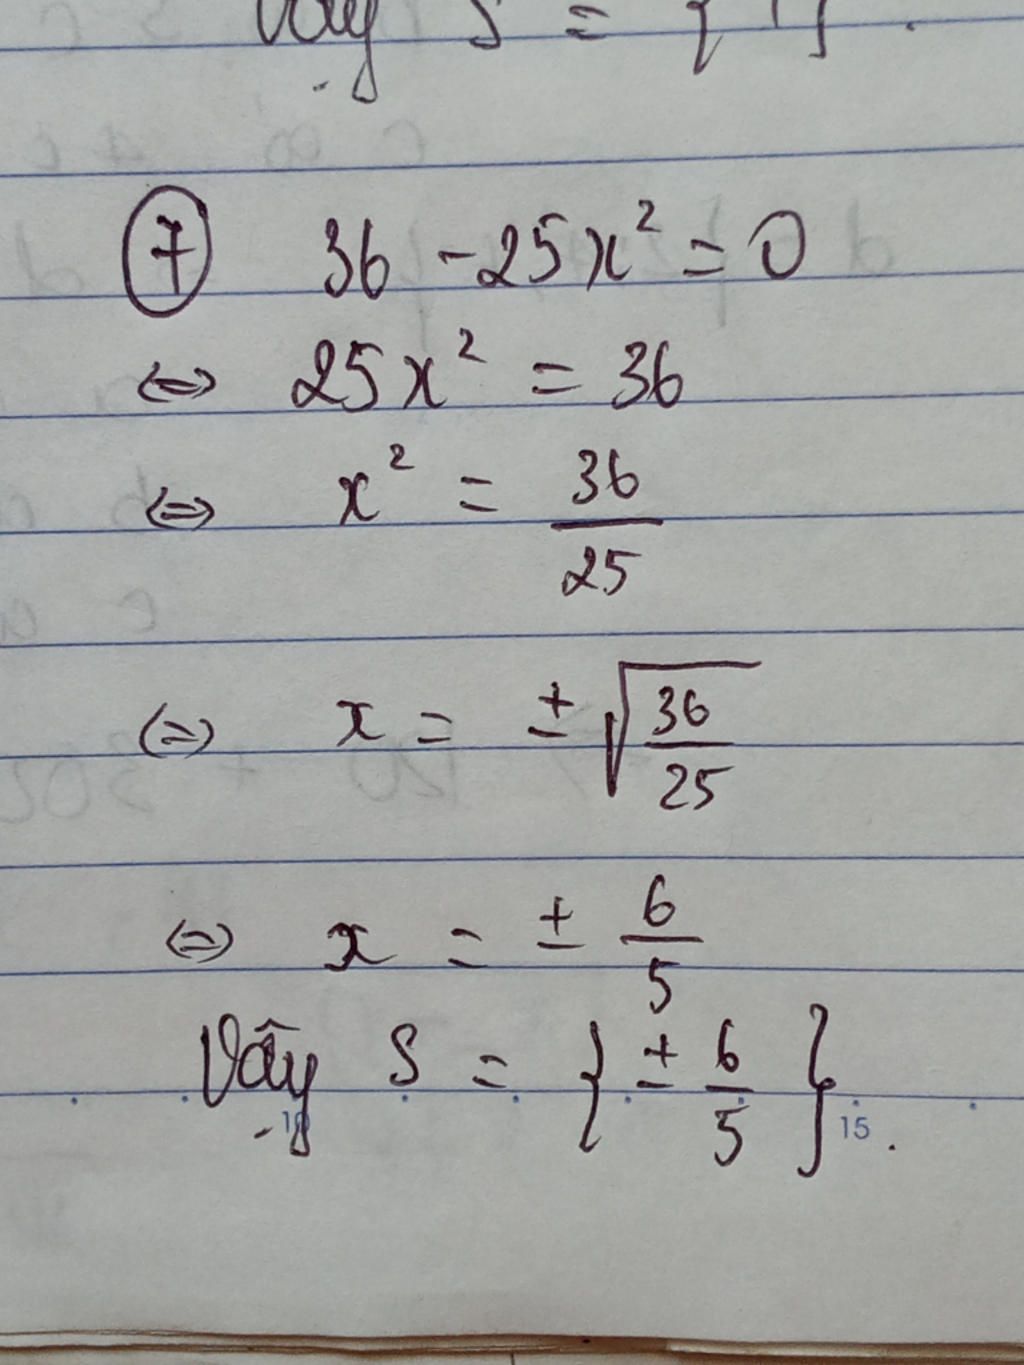 Vậy S = { 1 } .
⑦ 36 - 25x² = 0
⇔ 25x² = 36
⇔ x² = 36/25
⇔ x = ± √(36/25)
⇔ x = ± 6/5
Vậy S = { ± 6/5 } .
10 15